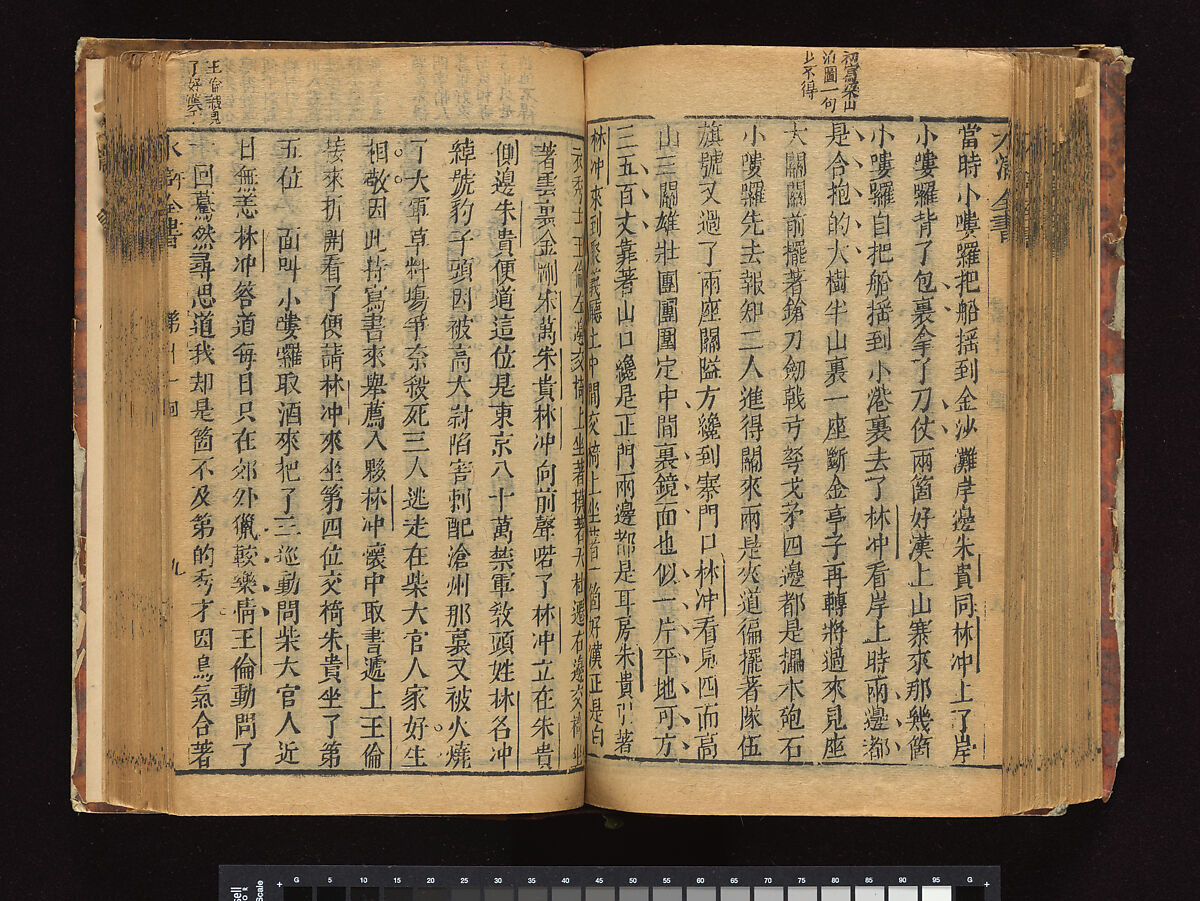 水滸全書
初寫梁山
泊圖一句
上不得
當時小嘍囉把船搖到金沙灘岸邊朱貴同林冲上了岸
小嘍囉背了包裹拿了刀仗兩箇好漢上山寨來那幾箇
小嘍囉自把船搖到小港裏去了林冲看岸上時兩邊都
是合抱的大樹半山裏一座斷金亭子再轉將過來見座
大關關前擺着鎗刀劒戟弓弩戈矛四邊都是擂木砲石
小嘍囉先去報知二人進得關來兩邊夾道徧擺着隊伍
旗號又過了兩座關隘方纔到寨門口林冲看見四面高
山三關雄壯團團圍定中間裏鏡面也似一片平地可方
三五百丈靠着山口纔是正門兩邊都是耳房朱貴引着
林冲來到聚義廳上中間交椅上坐着一箇好漢正是白
衣秀士王倫左邊交椅上坐着摸着天杜遷右邊交椅坐
着雲裏金剛宋萬朱貴林冲向前聲喏了林冲立在朱貴
側邊朱貴便道這位是東京八十萬禁軍敎頭姓林名冲
綽號豹子頭因被高太尉陷害刺配滄州那裏又被火燒
了大軍草料場爭奈殺死三人逃走在柴大官人家好生
相敬因此特寫書來舉薦入夥林冲懷中取書遞上王倫
接來拆開看了便請林冲來坐第四位交椅朱貴坐了第
五位一面叫小嘍囉取酒來把了三巡動問柴大官人近
日無恙林冲答道每日只在郊外獵較樂情王倫動問了
一回驀然尋思道我却是箇不及第的秀才因鳥氣合着
水滸全書 第十一回 九